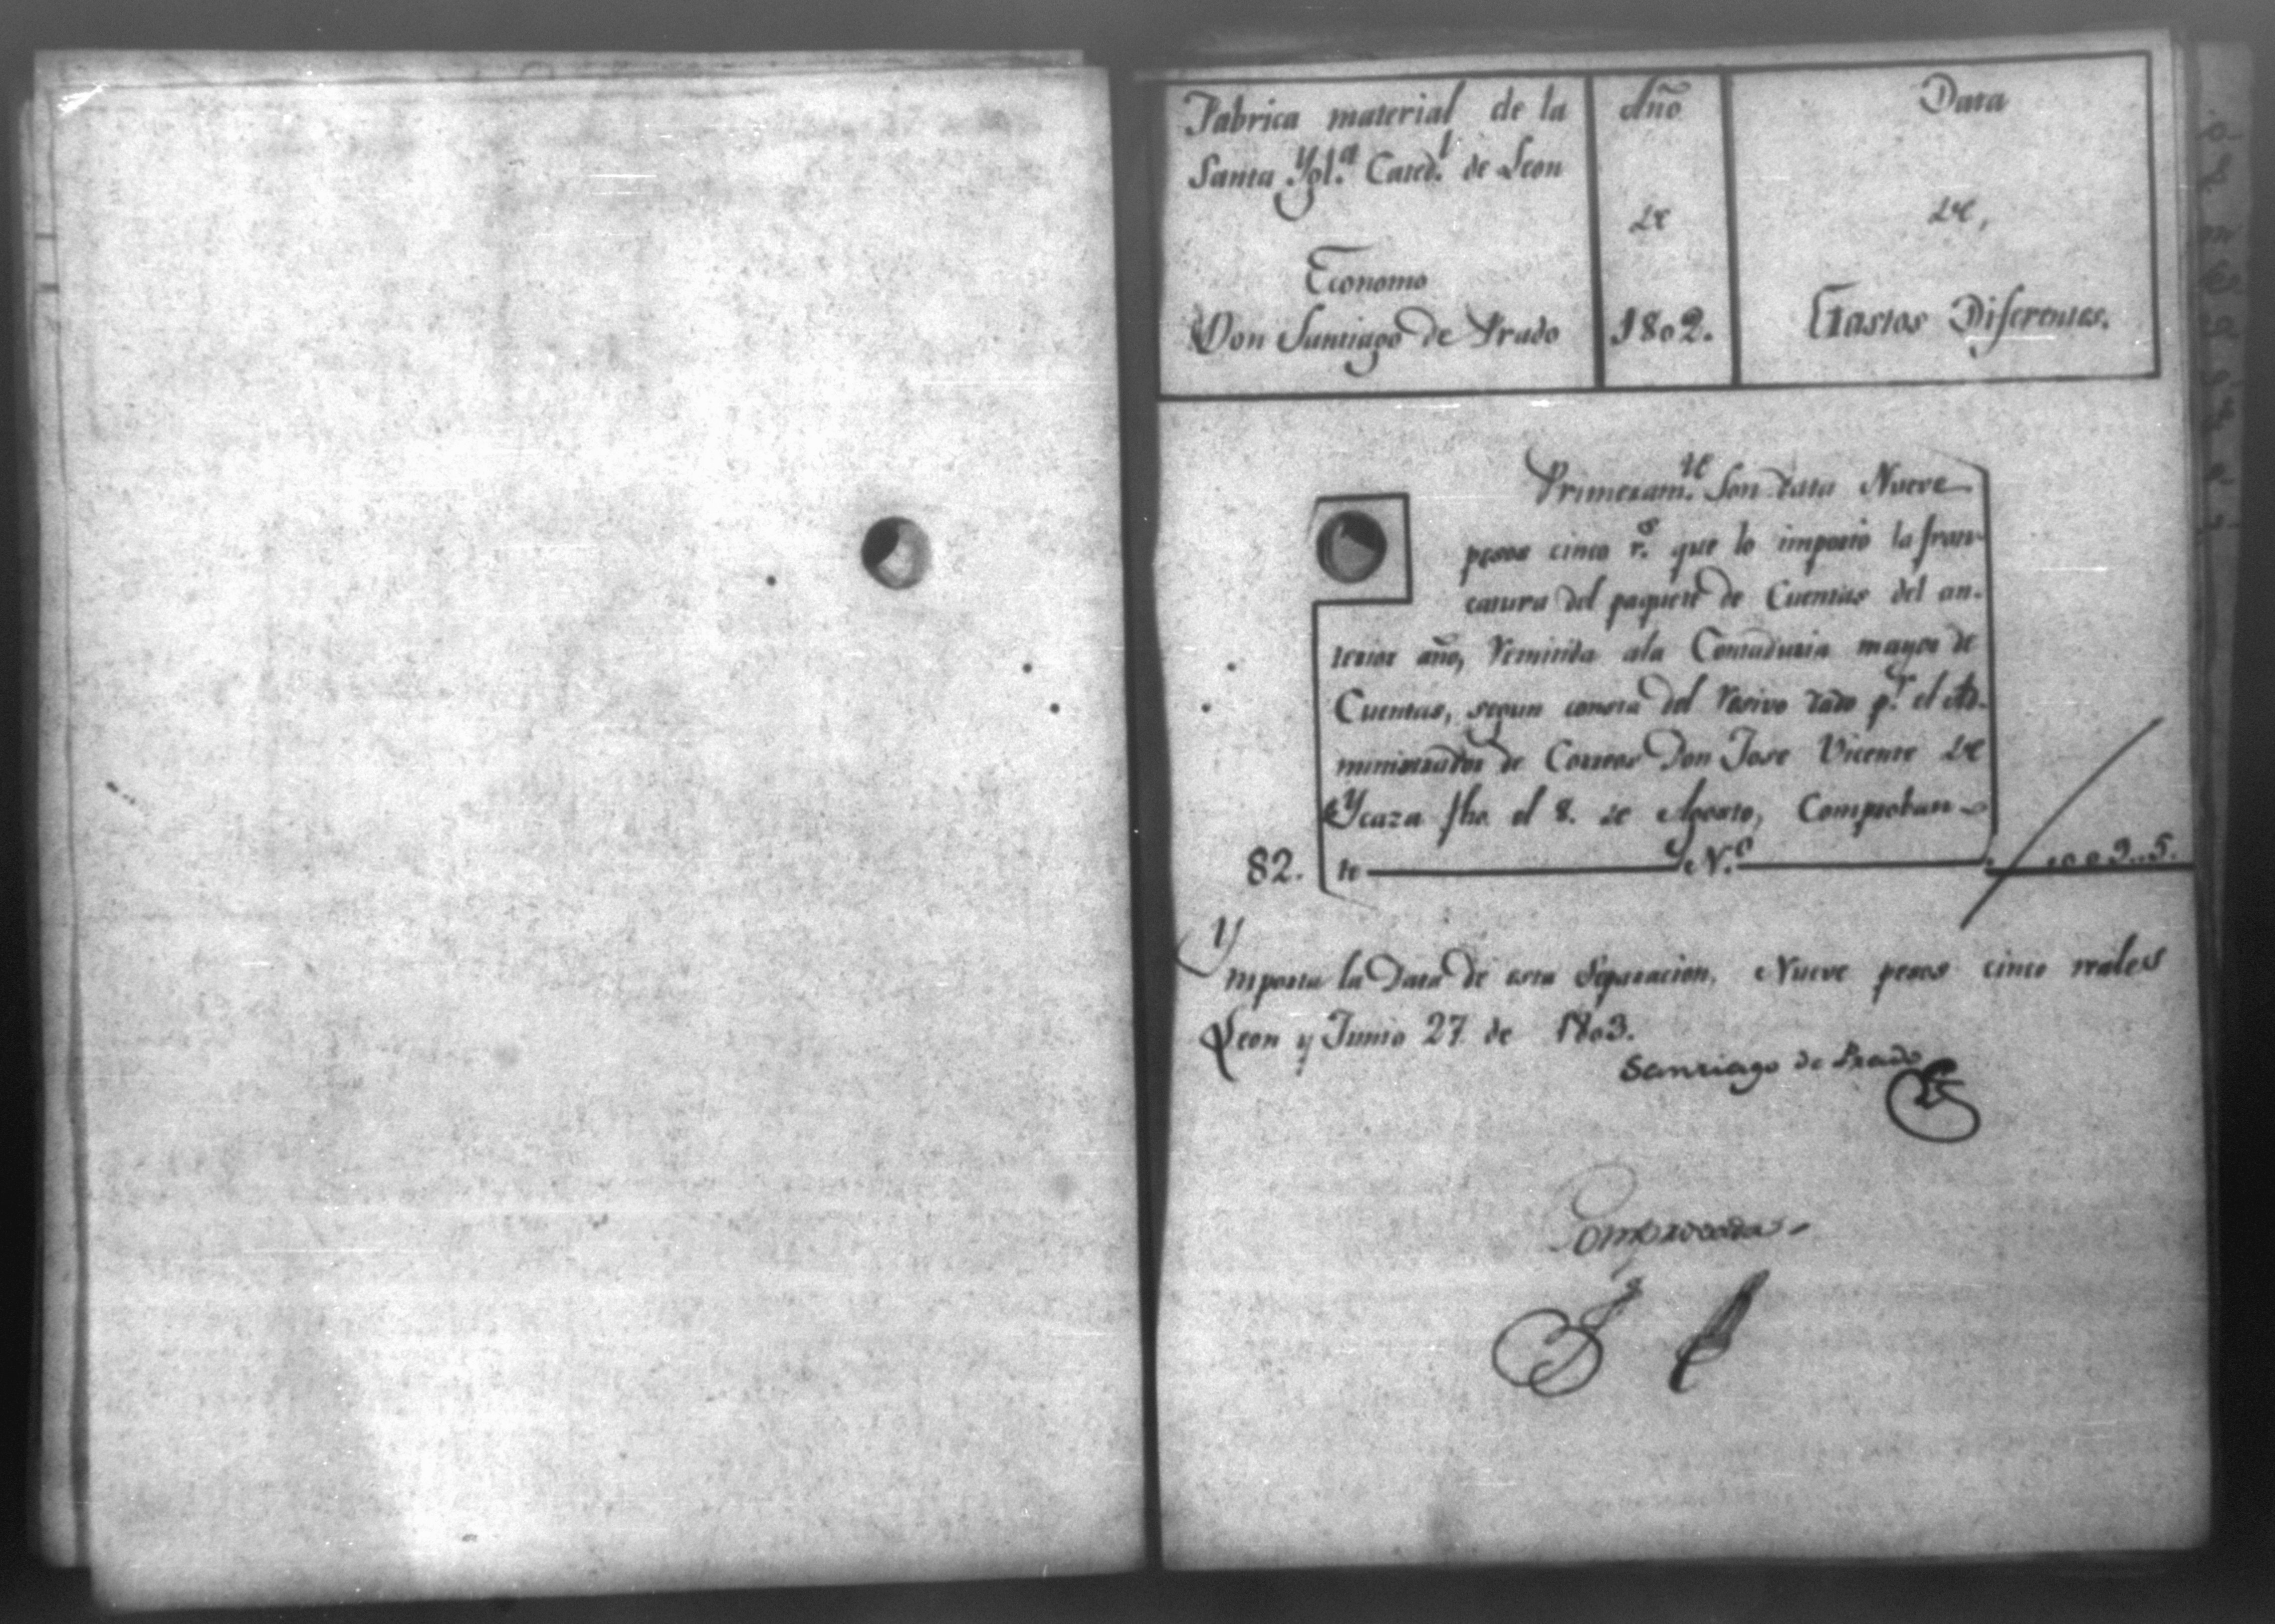 Fabrica material de la
Santa Ygl.ª Cated.l de Leon
Economo
Don Santiago de Prado
Año
de
1802.
Data
de,
Gastos Diferentes.
Primeram.te Son data Nueve
pesos cinco r.s que lo importó la fran-
catura del paquete de Cuentas del an-
terior año, remitida ala Contaduria mayor de
Cuentas, segun consta del resivo dado p.r el Ad-
ministrador de Correos Don Jose Vicente de
Ycaza fho. el 8. de Agosto, Comproban-
82. te N.º ..009..5.
Ymporta la Data de esta Separacion, Nueve pesos cinco reales
Leon y Junio 27 de 1803.
Santiago de Prado
Comprovadas